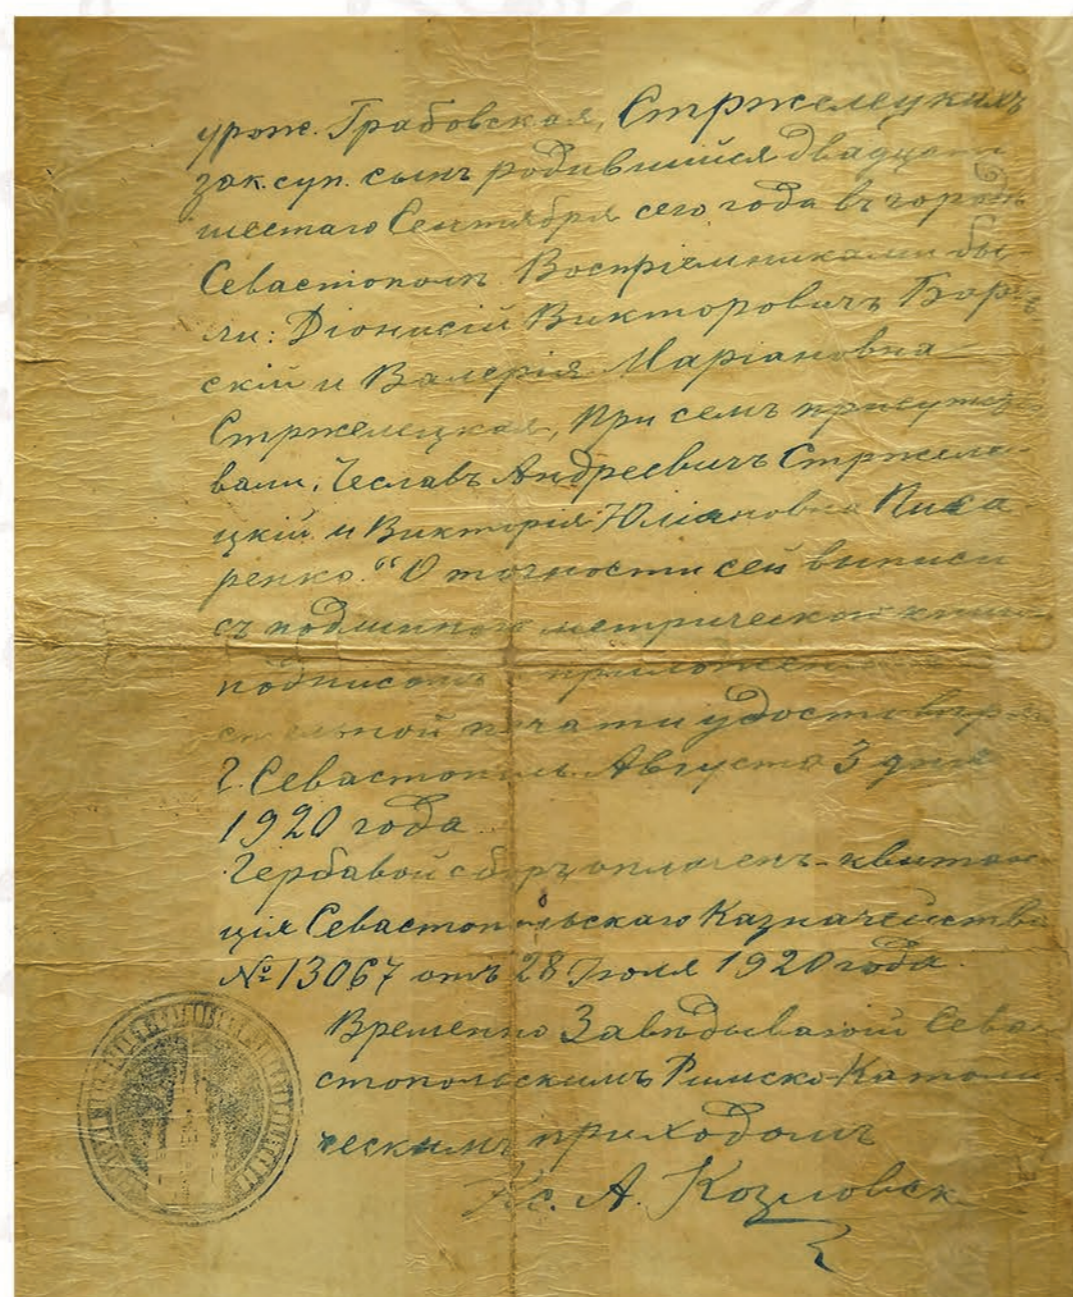 урож. Грабовская, Стржелецкихъ
зак. суп. сынъ родившийся двадцать
шестаго Сентября сего года въ городѣ
Севастополѣ. Воспріемниками бы-
ли: Діонисій Викторовичъ Бор-
скій и Валерія Маріановна
Стржелецкая, При семъ присутство-
вали, Чеславъ Андреевичъ Стржеле-
цкій и Викторія Юліановна Писа-
ренко." О точности сей выписи
съ подлинною метрической книгой
подписомъ приложеніемъ
печати удостовѣряю
г. Севастополь. Августа 3 дня
1920 года.
Гербавой сборъ оплоченъ - квитан
ція Севастопольскаго Казначейства
№ 13067 отъ 28 Іюля 1920 года.
Временно Завѣдываюій Сева
стопольскимъ Римско-Катали
ческимъ приходомъ
Кс. А. Козловск